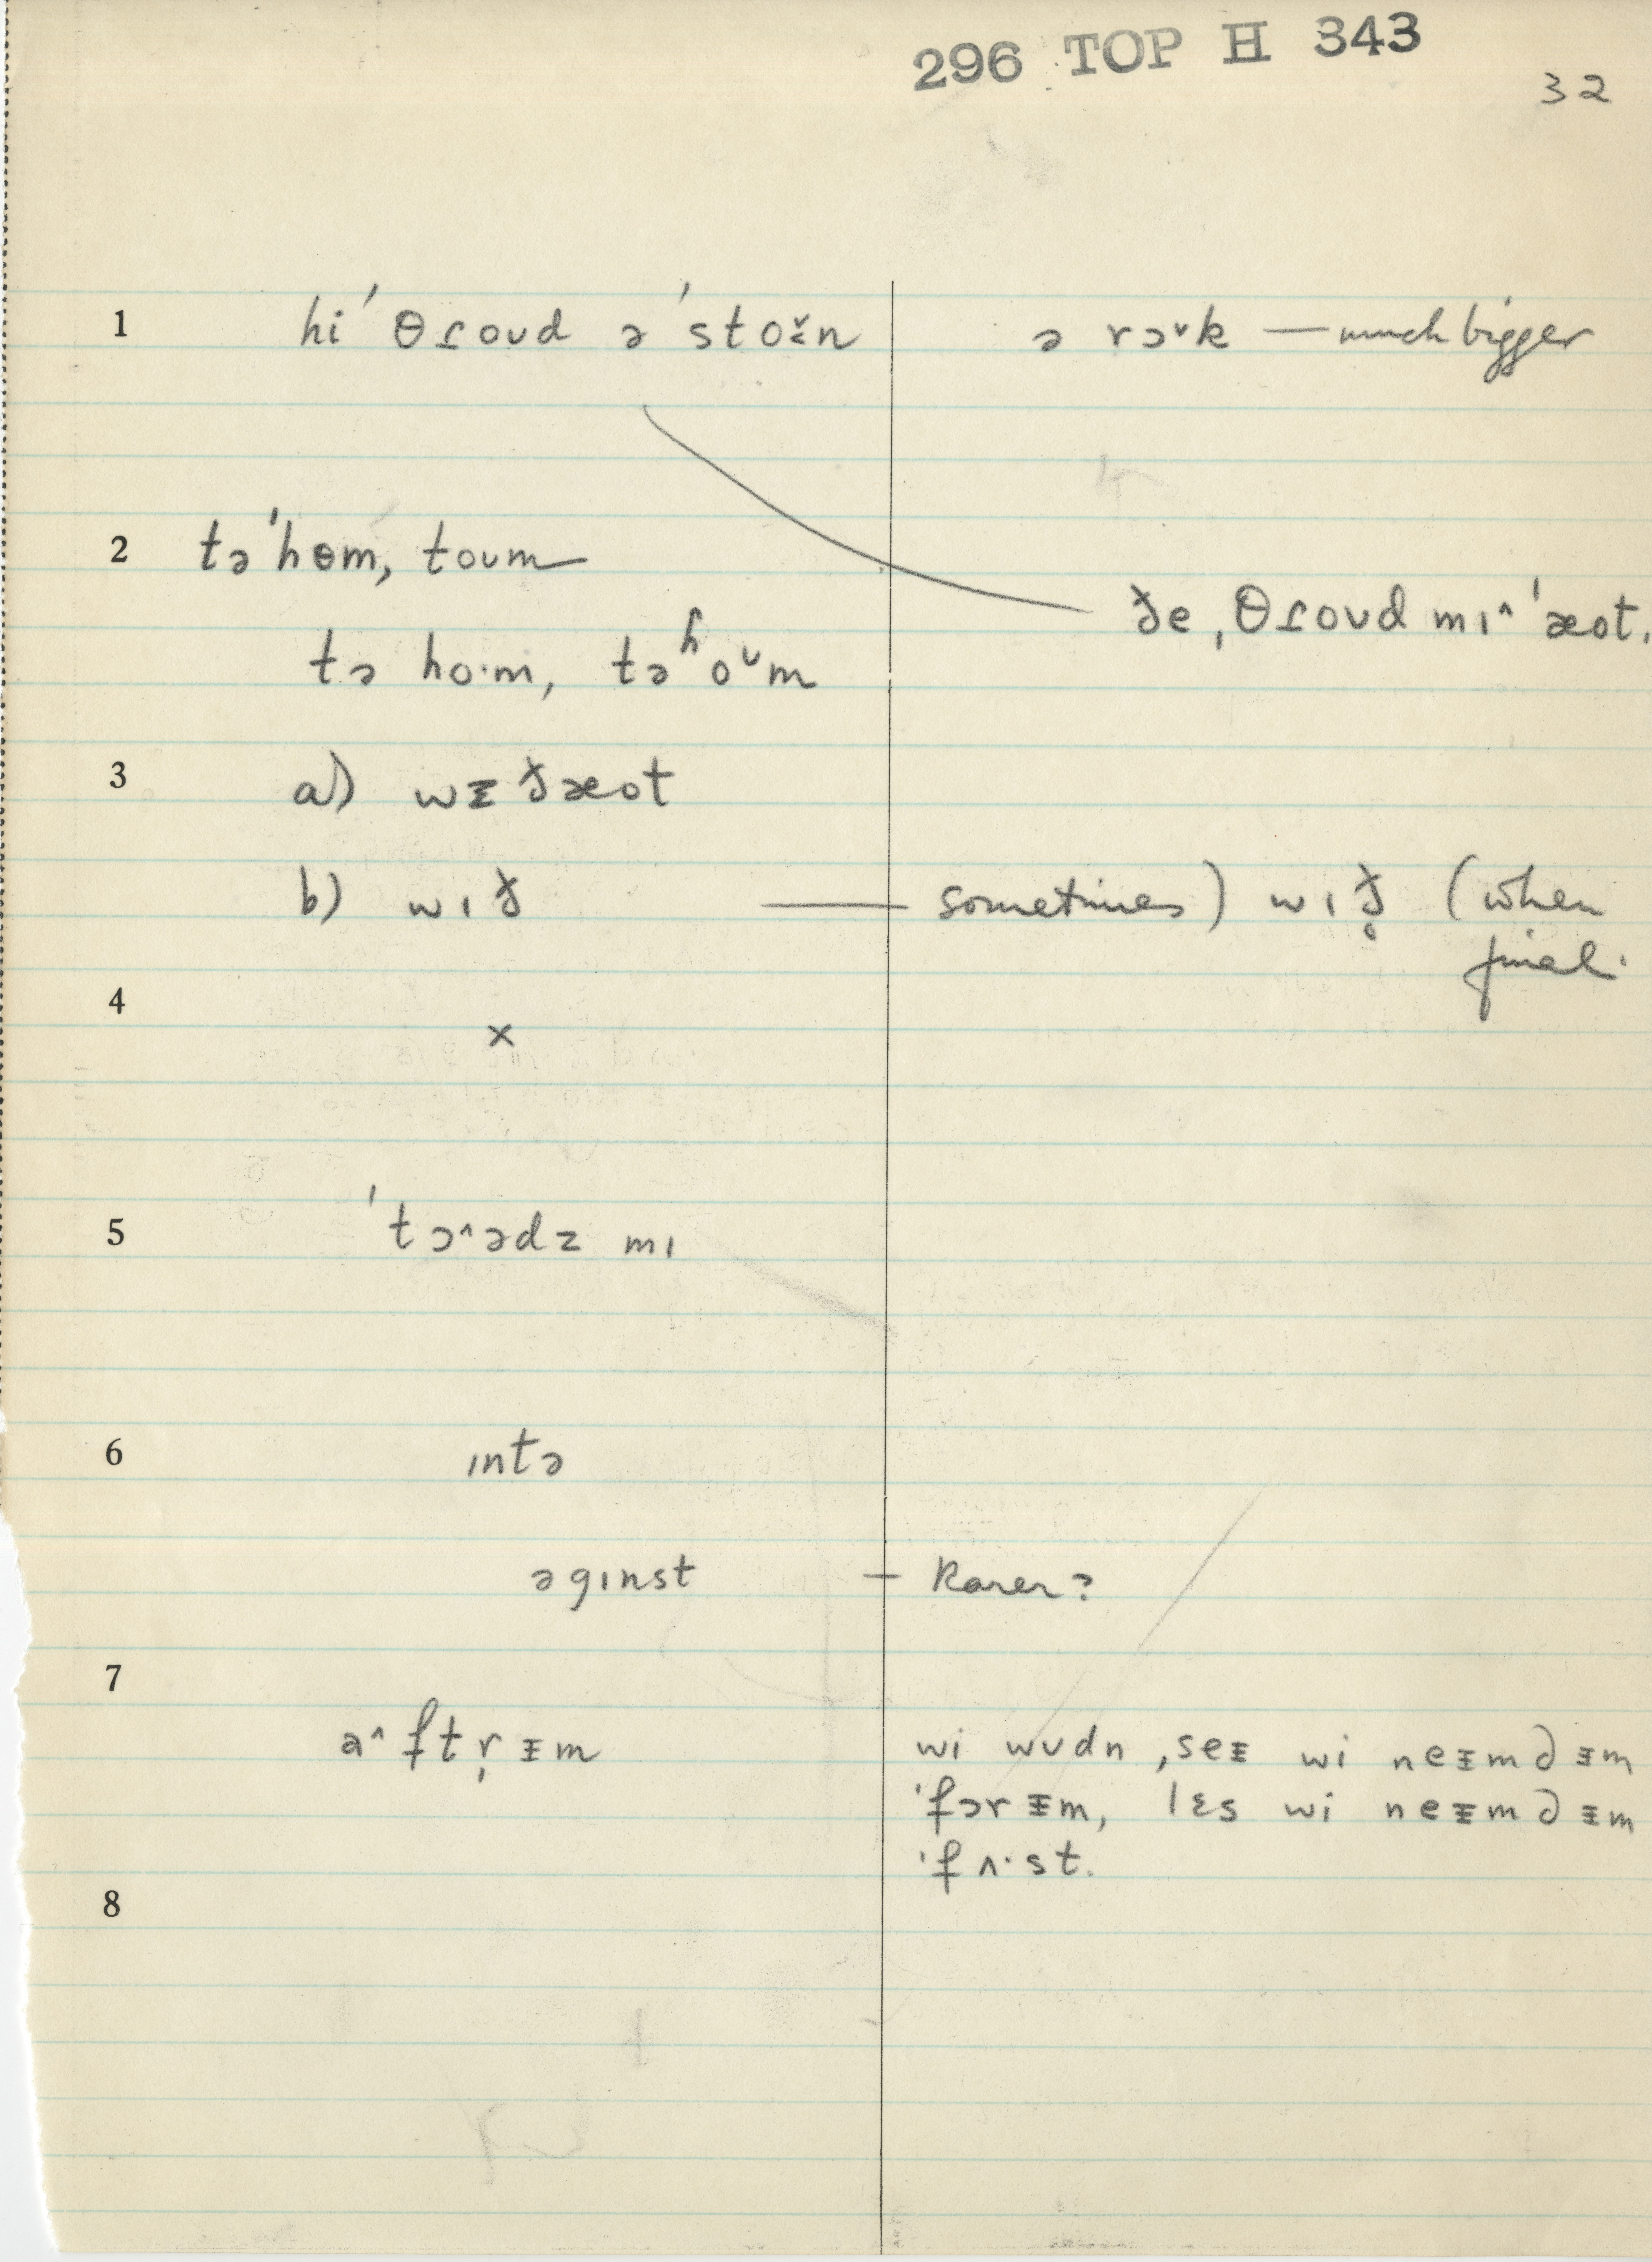 296 TOP H 343
32
1 hi ˈθɾoʊd ə ˈstoɪ̌n ə rɔˇk — much bigger
2 təˈhɵm, toʊm
ðe ˌθɾoʊd mɪ^ ˈæot.
tə ho·m, təʰoᵘm
3 a) wᵻðæot
b) wɪð — sometimes) wɪð̥ (when
final.
4 ×
5 ˈtɔ^ədz mɪ
6 ɪntə
əgɪnst — Rarer?
7
a^ftr̩ᵻm wi wʊdn ˌseᵻ wi neᵻm ðᵻm
ˈfɔrᵻm, lɛs wi neᵻm ðᵻm
ˈfʌ·st.
8